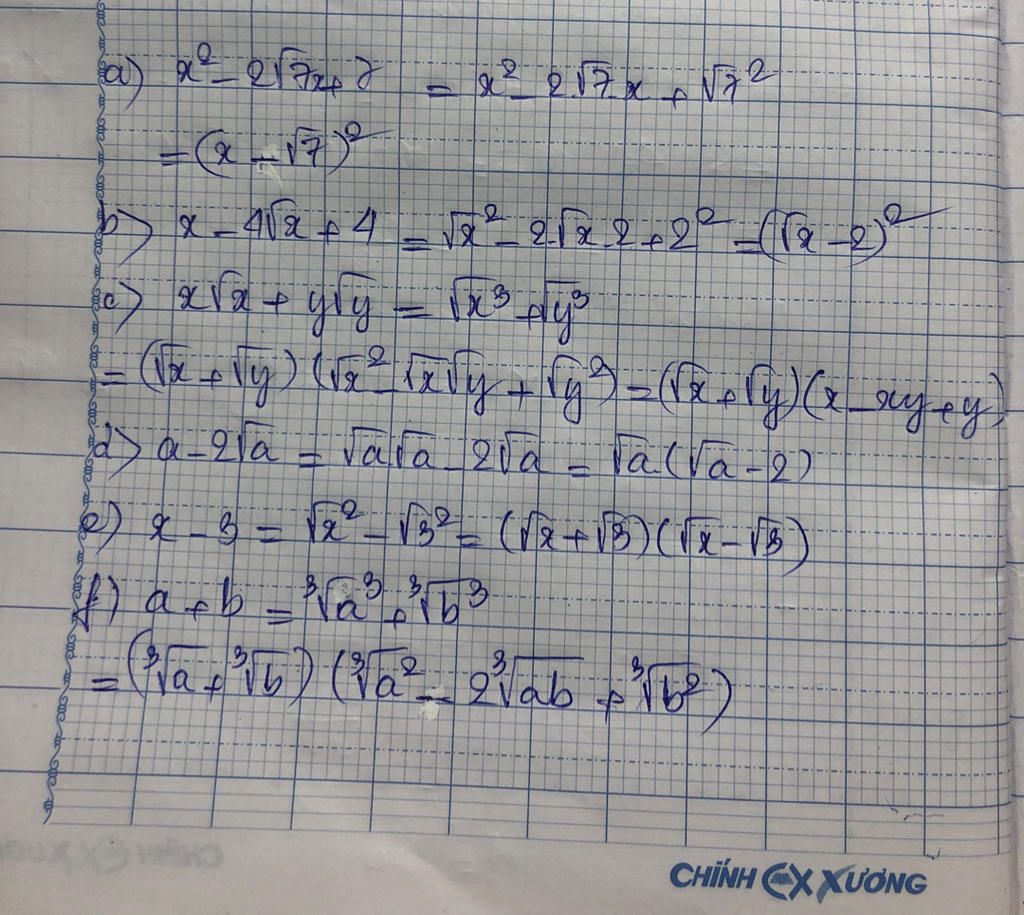 a) x² - 2√7x + 7 = x² - 2√7 x + √7²
= (x - √7)²
b) x - 4√x + 4 = √x² - 2.√x.2 + 2² = (√x - 2)²
c) x√x + y√y = √x³ + √y³
= (√x + √y) (√x² - √x√y + √y²) = (√x + √y)(x - xy + y)
d) a - 2√a = √a√a - 2√a = √a (√a - 2)
e) x - 3 = √x² - √3² = (√x + √3) (√x - √3)
f) a + b = ³√a³ + ³√b³
= (³√a + ³√b) (³√a² - 2³√ab + ³√b²)
CHÍNH EX XƯƠNG